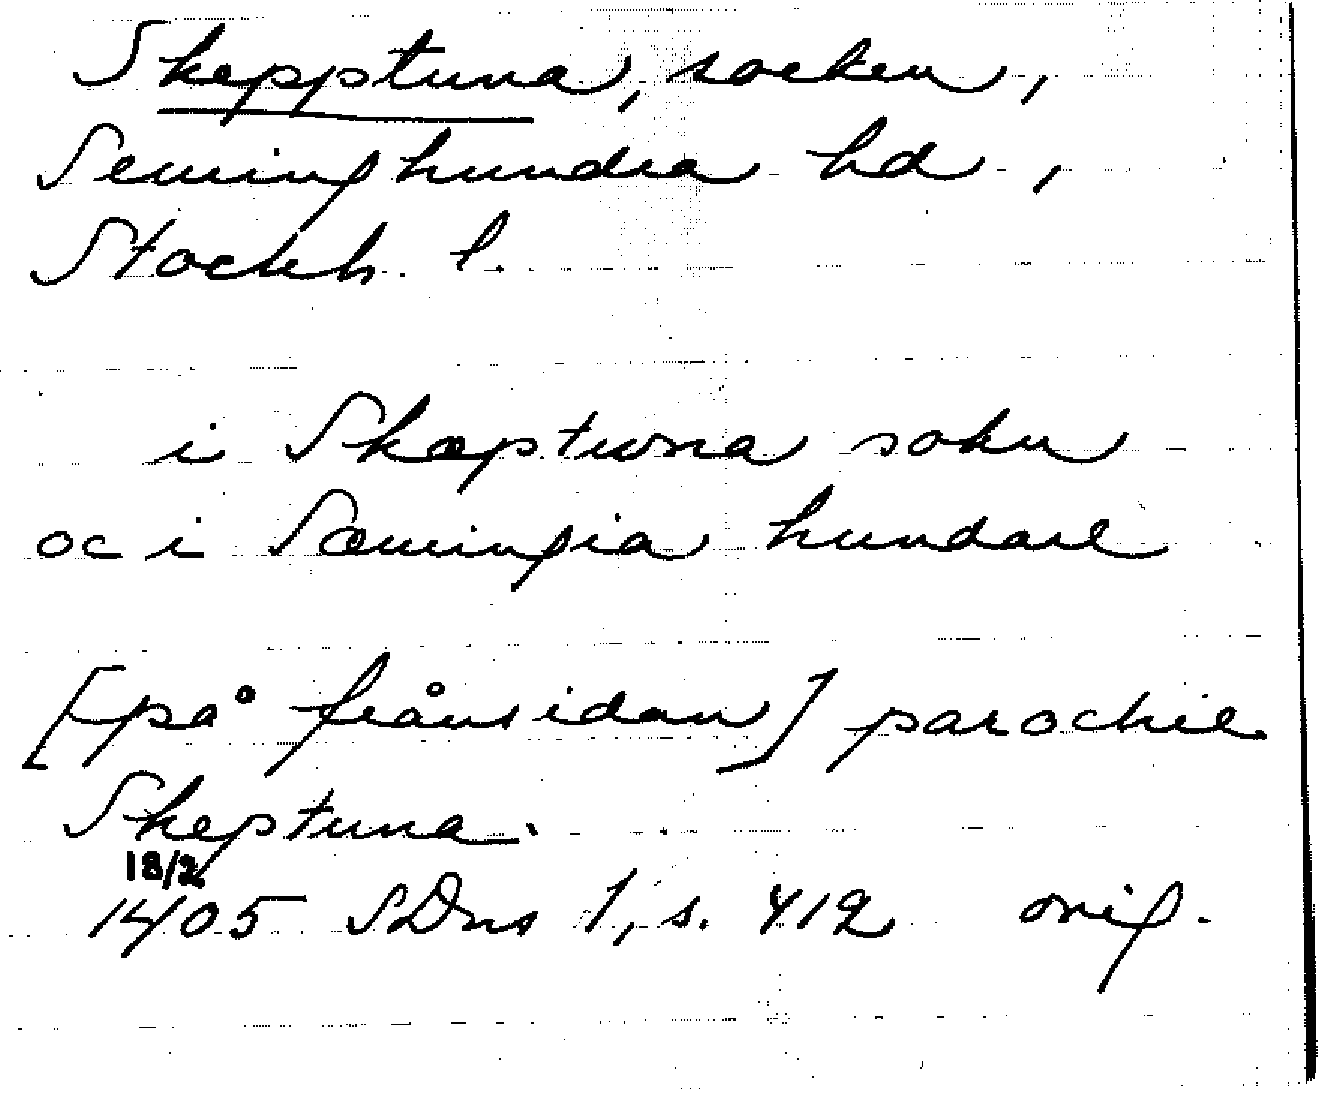 Skepptuna, socken,
Seminghundra hd,
Stockh. l.
i Skæptuna sokn
oc i Sæmingia hundare
[på frånsidan] parochie
Skeptuna.
18/2
1405 SDns 1, s. 412 orig.